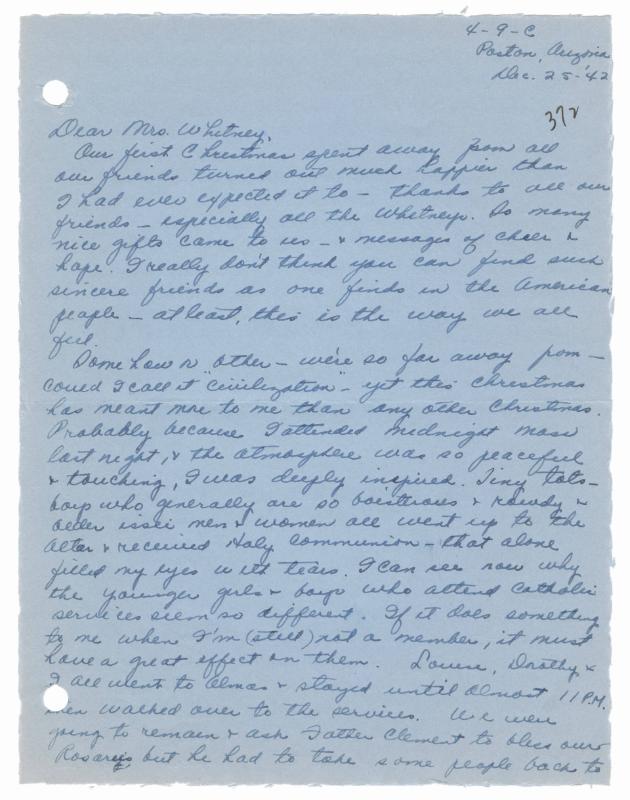 4-9-C
Poston, Arizona
Dec. 25-'42
372
Dear Mrs. Whitney,
Our first Christmas spent away from all
our friends turned out much happier than
I had ever expected it to - thanks to all our
friends - especially all the Whitneys. So many
nice gifts came to us - & messages of cheer &
hope. I really don't think you can find such
sincere friends as one finds in the American
people - at least, this is the way we all
feel.
Some how or other - we're so far away from -
could I call it "civilization" - yet this Christmas
has meant more to me than any other Christmas.
Probably because I attended midnight mass
last night, & the atmosphere was so peaceful
& touching, I was deeply inspired. Tiny tots -
boys who generally are so boistrous & rowdy &
older issei men & women all went up to the
altar & received Holy Communion - that alone
filled my eyes with tears. I can see now why
the younger girls & boys who attend catholic
services seem so different. If it does something
to me when I'm (still) not a member, it must
have a great effect on them. Louise, Dorothy &
I all went to Almas & stayed until almost 11 P.M.
then walked over to the services. We were
going to remain & ask Father Clement to bless our
Rosarys but he had to take some people back to